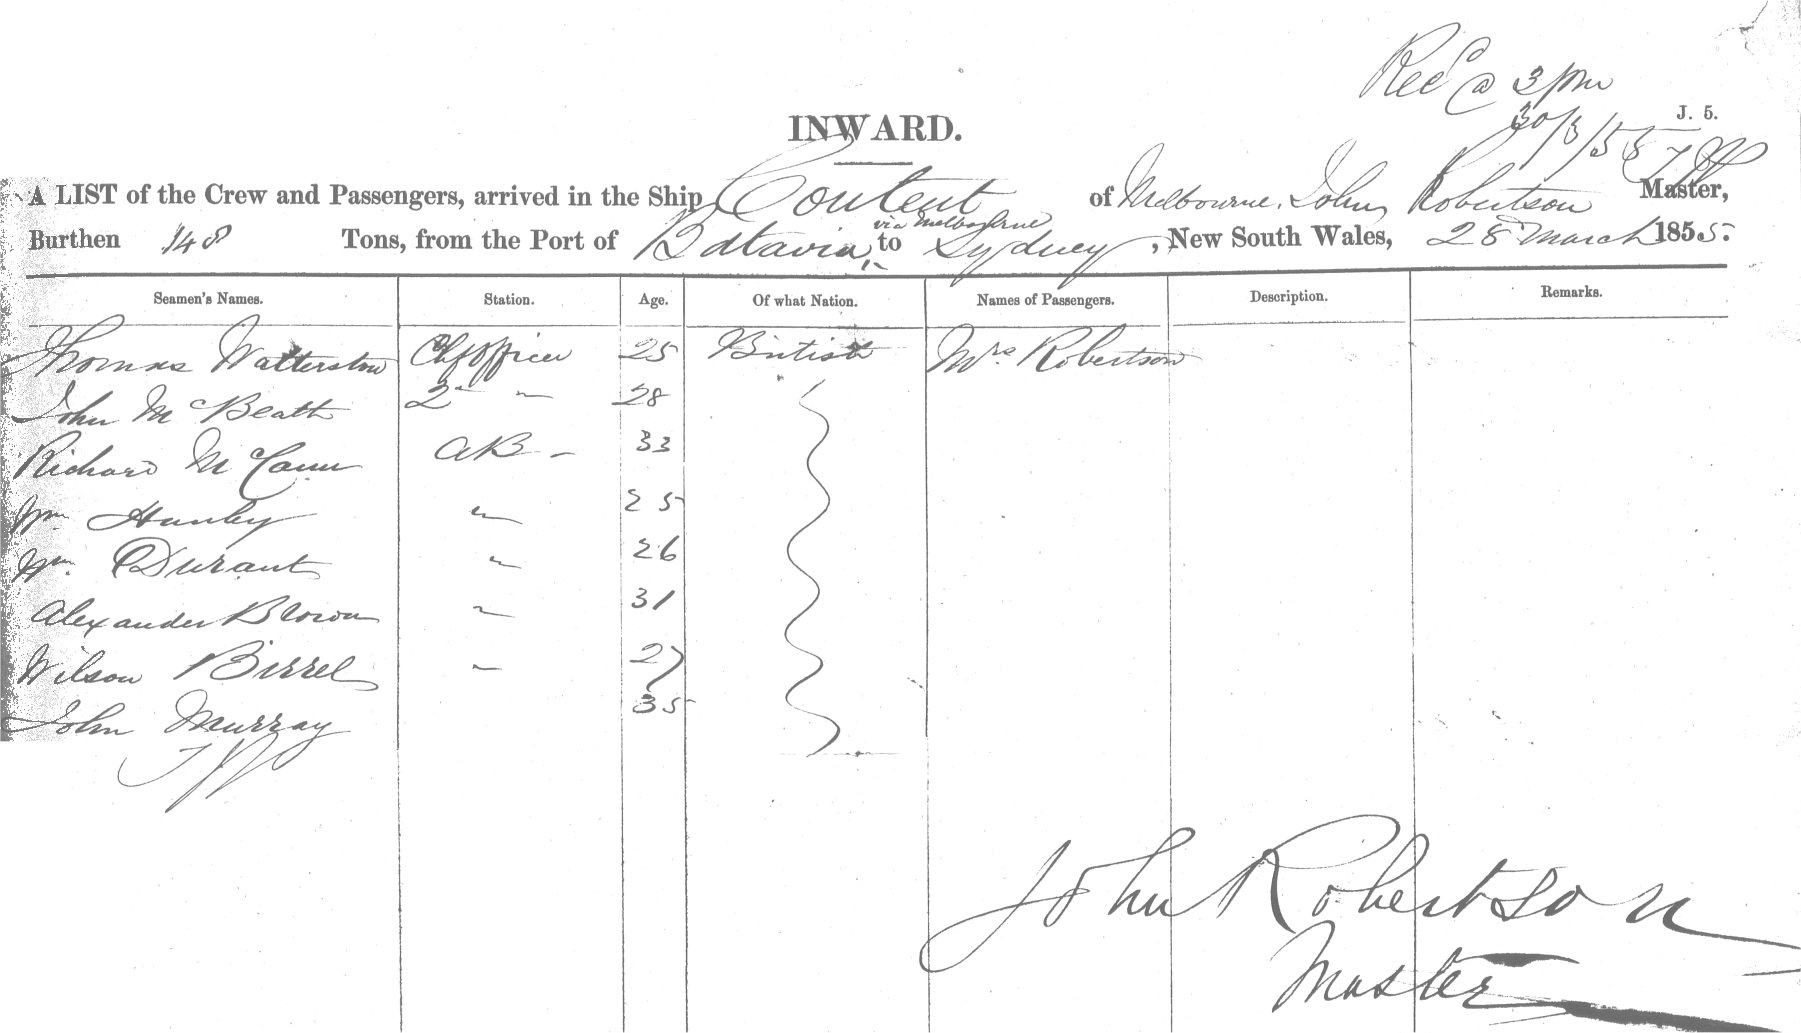 Recd @ 3 pm
30/3/55
J. 5.
INWARD.
A LIST of the Crew and Passengers, arrived in the Ship Content of Melbourne, John Robertson Master,
via Melbourne
Burthen 148 Tons, from the Port of Batavia, to Sydney, New South Wales, 28 March 1855.
Seamen's Names. Station. Age. Of what Nation. Names of Passengers. Description. Remarks.
Thomas Watterston Chf Officer 25 British Mrs. Robertson
John McBeath 2 " 28
Richard McCann AB - 33
Wm Hanley " 25
Wm. Durant " 26
Alexander Brown " 31
Wilson Birrel " 27
John Murray 35
John Robertson
Master